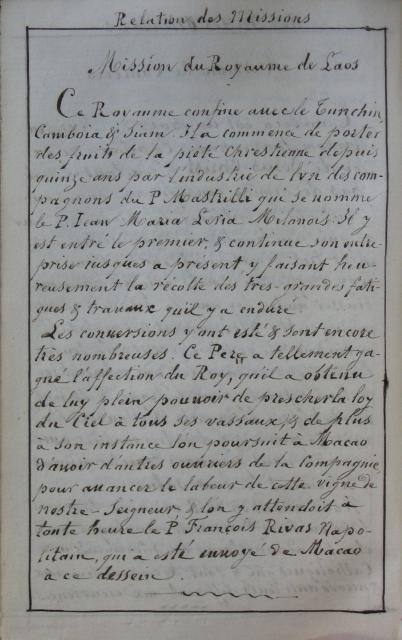 Relation des Missions
Mission du Royaume de Laos
Ce Royaume confine auec le Tunchin,
Camboia & Siam. Il a commencé de porter
des fruits de la piété Chrestienne depuis
quinze ans par l'industrie de l'vn des com-
pagnons du P. Mastrilli qui se nomme
le P. Iean Maria Leria Milanois. Il y
est entré le premier, & continue son entre-
prise iusques a présent y faisant heu-
reusement la récolte des tres-grandes fati-
gues & trauaux qu'il y a enduré
Les conuersions y ont esté & sont encore
très nombreuses. Ce Pere a tellement ga-
gné l'affection du Roy, qu'il a obtenu
de luy plein pouuoir de prescher la loy
du Ciel à tous ses vassaux, & de plus
à son instance l'on poursuit à Macao
d'auoir d'autres ouuriers de la Compagnie,
pour auancer le labeur de cette vigne de
nostre-Seigneur, & l'on y attendoit à
toute heure le P. François Rivas Napo-
litain, qui a esté enuoyé de Macao
à ce dessein.